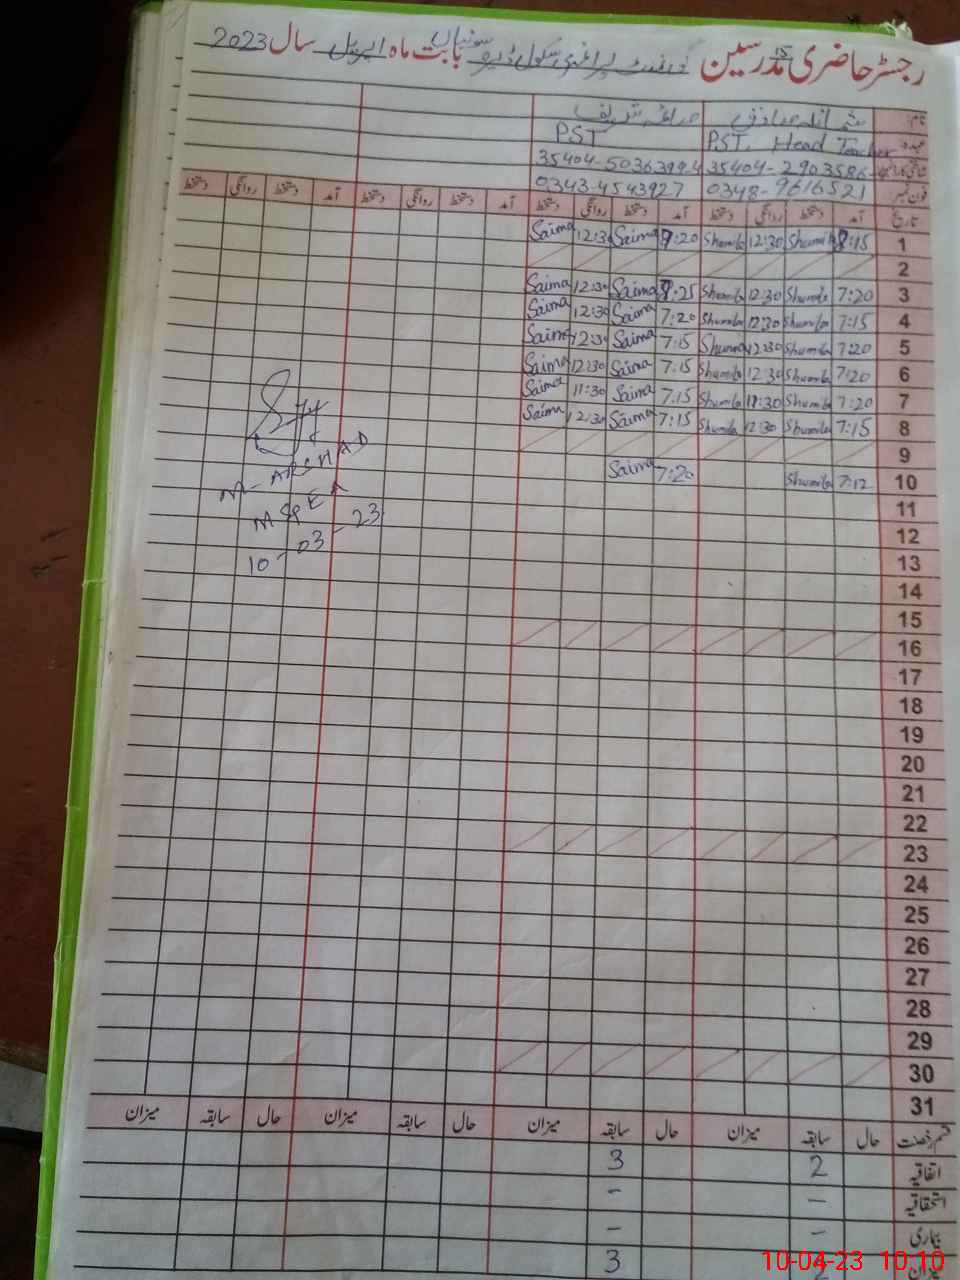 رجسٹر حاضری مدرسین گورنمنٹ پرائمری سکول بابت ماہ اپریل سال 2023
نام: شمائلہ صادق صائمہ شریف
عہدہ: PST, Head Teacher PST
35404-2903586- 35404-5036399-4
فون نمبر: 0348-9616521 0343-4543927
تاریخ آمد دستخط روانگی دستخط آمد دستخط روانگی دستخط آمد دستخط روانگی دستخط آمد دستخط روانگی دستخط
1 8:15 Shumila 12:30 Shumila 8:20 Saima 12:30 Saima
2
3 7:20 Shumila 12:30 Shumila 8:25 Saima 12:30 Saima
4 7:15 Shumila 12:30 Shumila 7:20 Saima 12:30 Saima
5 7:20 Shumila 12:30 Shumila 7:15 Saima 12:30 Saima
6 7:20 Shumila 12:30 Shumila 7:15 Saima 12:30 Saima
7 7:20 Shumila 11:30 Shumila 7:15 Saima 11:30 Saima
8 7:15 Shumila 12:30 Shumila 7:15 Saima 12:30 Saima
9
10 7:12 Shumila 7:20 Saima
M-ARSHAD
MSPEA
10-03-23
11
12
13
14
15
16
17
18
19
20
21
22
23
24
25
26
27
28
29
30
31
قسم رخصت حال سابقہ میزان حال سابقہ میزان حال سابقہ میزان حال سابقہ میزان
اتفاقیہ 2 3
استحقاقیہ - -
بیماری - -
میزان 3
10-04-23 10:10